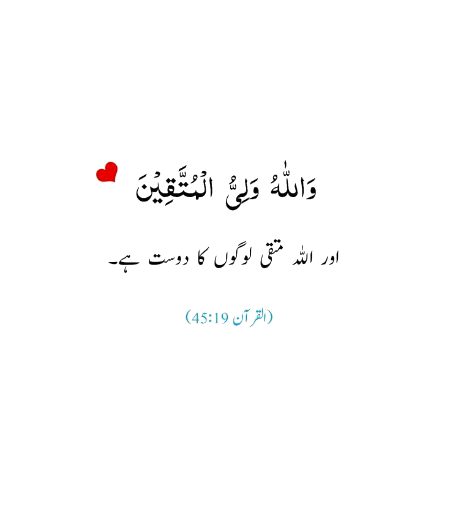 وَاللّٰهُ وَلِیُّ الْمُتَّقِیْنَ
اور اللہ متقی لوگوں کا دوست ہے۔
(القرآن 45:19)